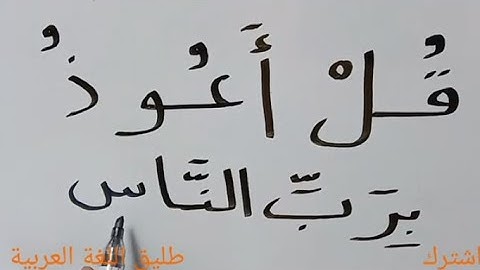 قُلْ أَعُوذُ
بِرَبِّ النَّاس
اشترك
طليق اللغة العربية